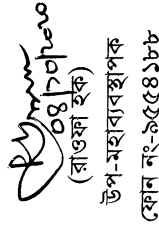 ০৪/১০/২০২০
(রাওফা হক)
উপ-মহাব্যবস্থাপক
ফোন নং-৯৫৫৪১৮৮